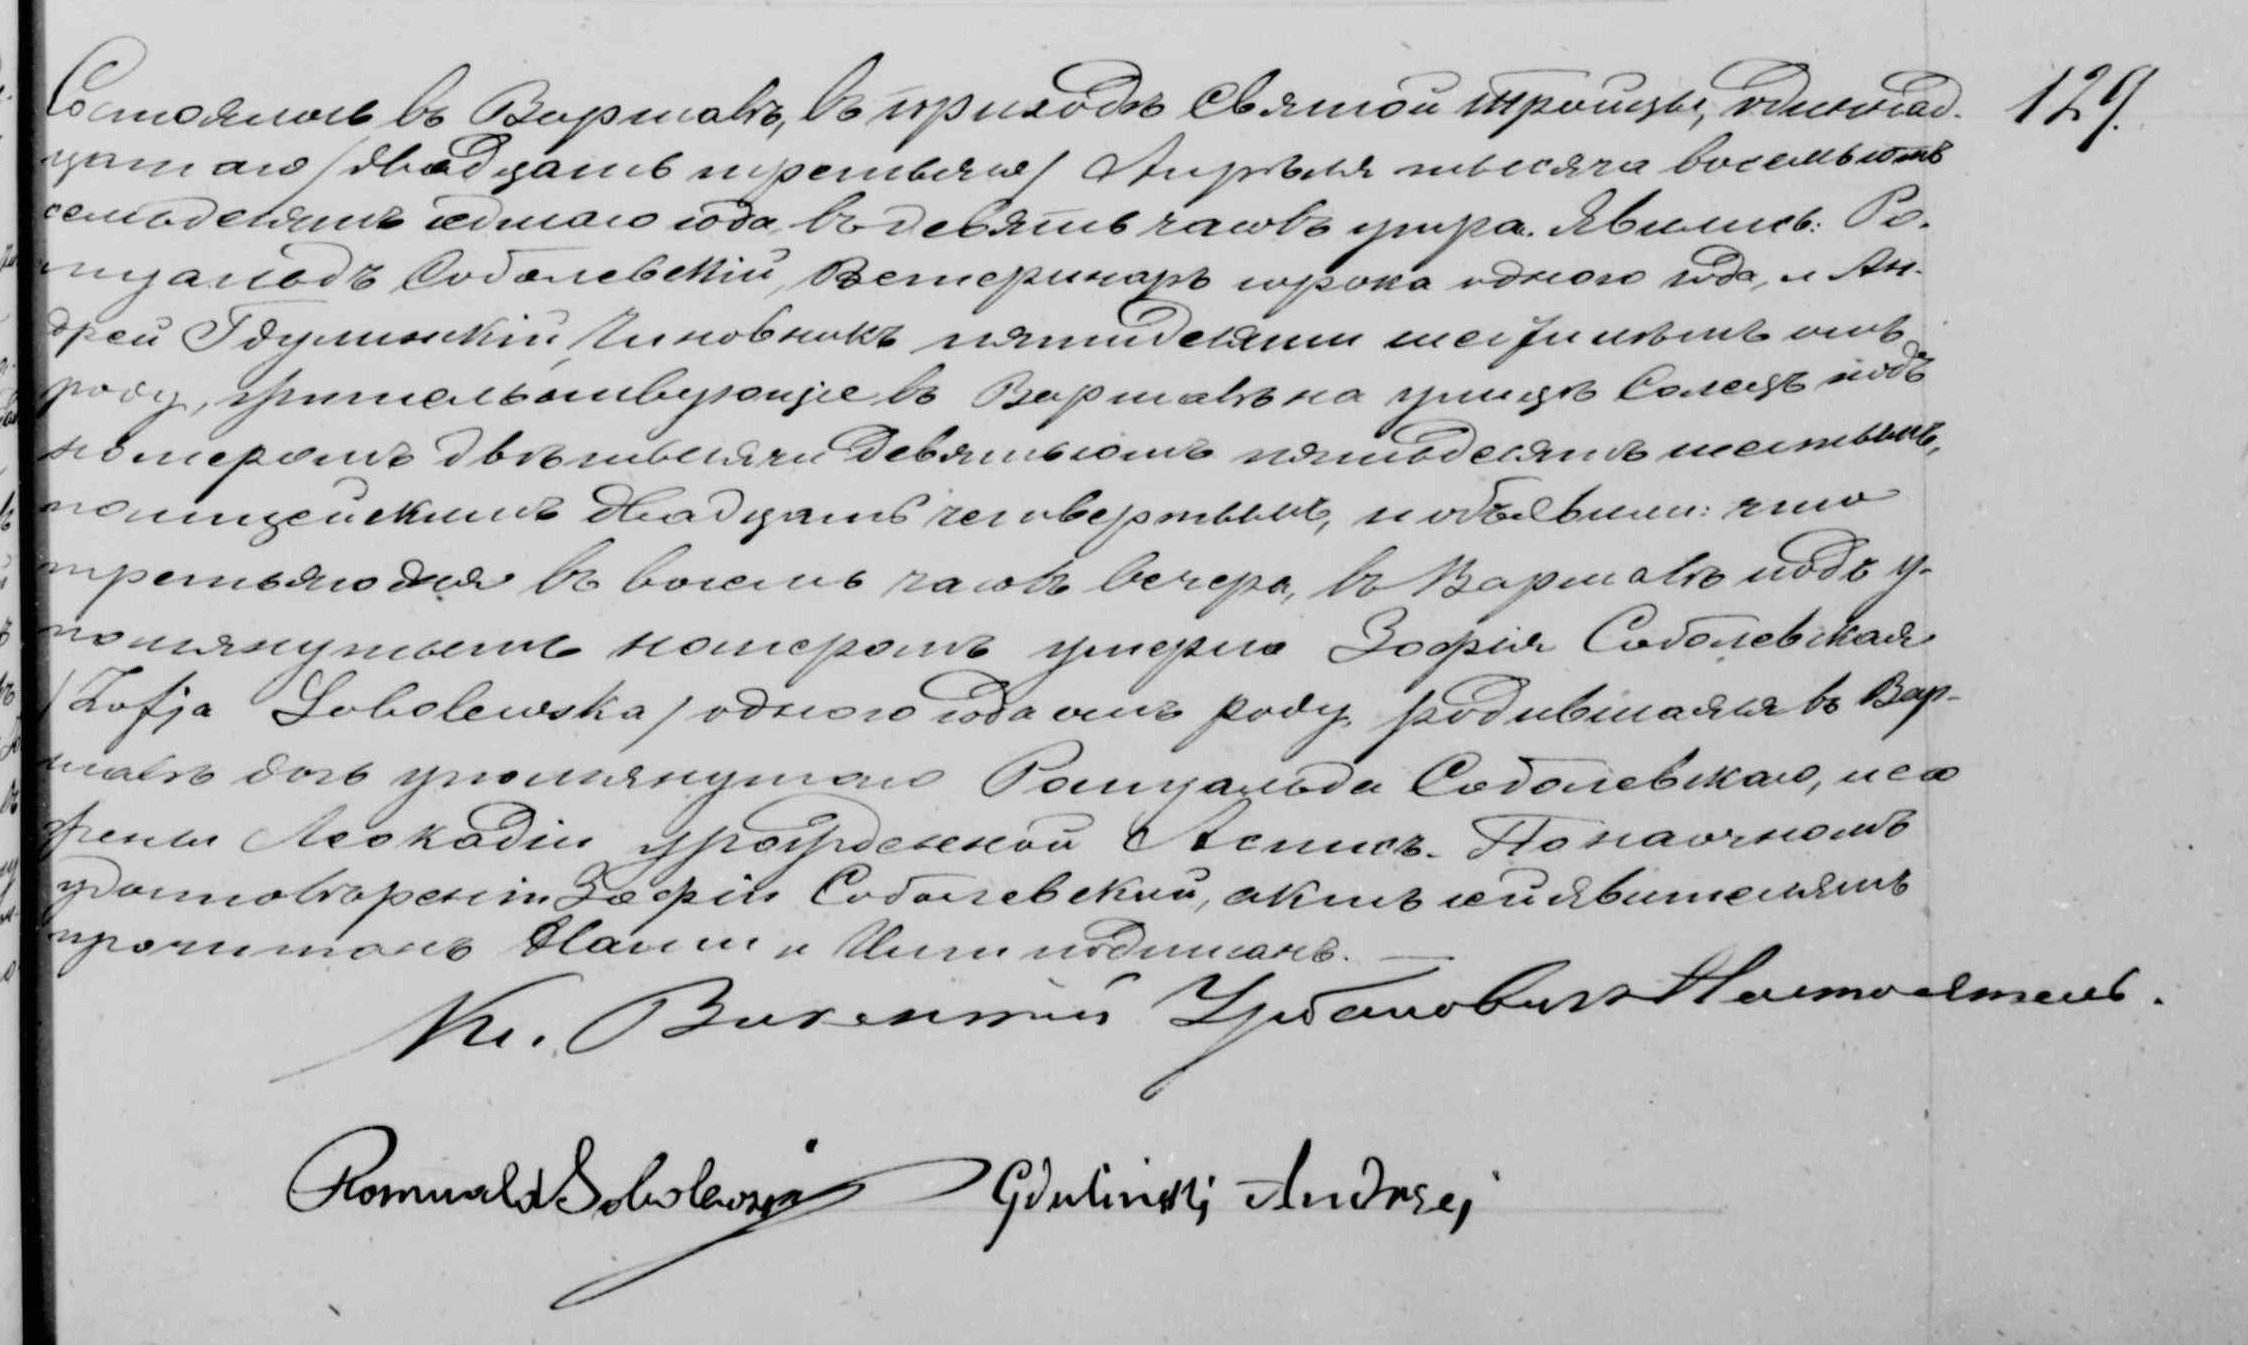 Состоялось въ Варшавѣ, въ приходѣ Святой Троицы, одиннад- 129.
цатаго /двадцать третьяго/ Апрѣля тысяча восемьсотъ
семьдесятъ седьмаго года, въ девять часовъ утра. Явились: Ро-
муальдъ Соболевскій, Ветеринаръ сорока одного года, и Ан-
дрей Гдулинскій, Чиновникъ пятидесяти шести лѣтъ отъ
роду, жительствующіе въ Варшавѣ на улицѣ Солецъ подъ
номеромъ двѣ тысячи девятьсотъ пятьдесятъ шестымъ,
полицейскимъ двадцать четвертымъ, и объявили: что
третьяго дня въ восемь часовъ вечера, въ Варшавѣ подъ у-
помянутымъ номеромъ умерла Зофія Соболевская
/Zofja Sobolewska/ одного года отъ роду, родившаяся въ Вар-
шавѣ дочь упомянутаго Ромуальда Соболевскаго, и его
жены Леокадіи урожденной По наочномъ
удостовѣреніи Зофіи Соболевской, актъ сей явителямъ
прочитанъ Нами и Ими подписанъ. —
Кс. Викентій Урбановичъ Настоятель.
Romuald Sobolewski Gdulinski Andrzej